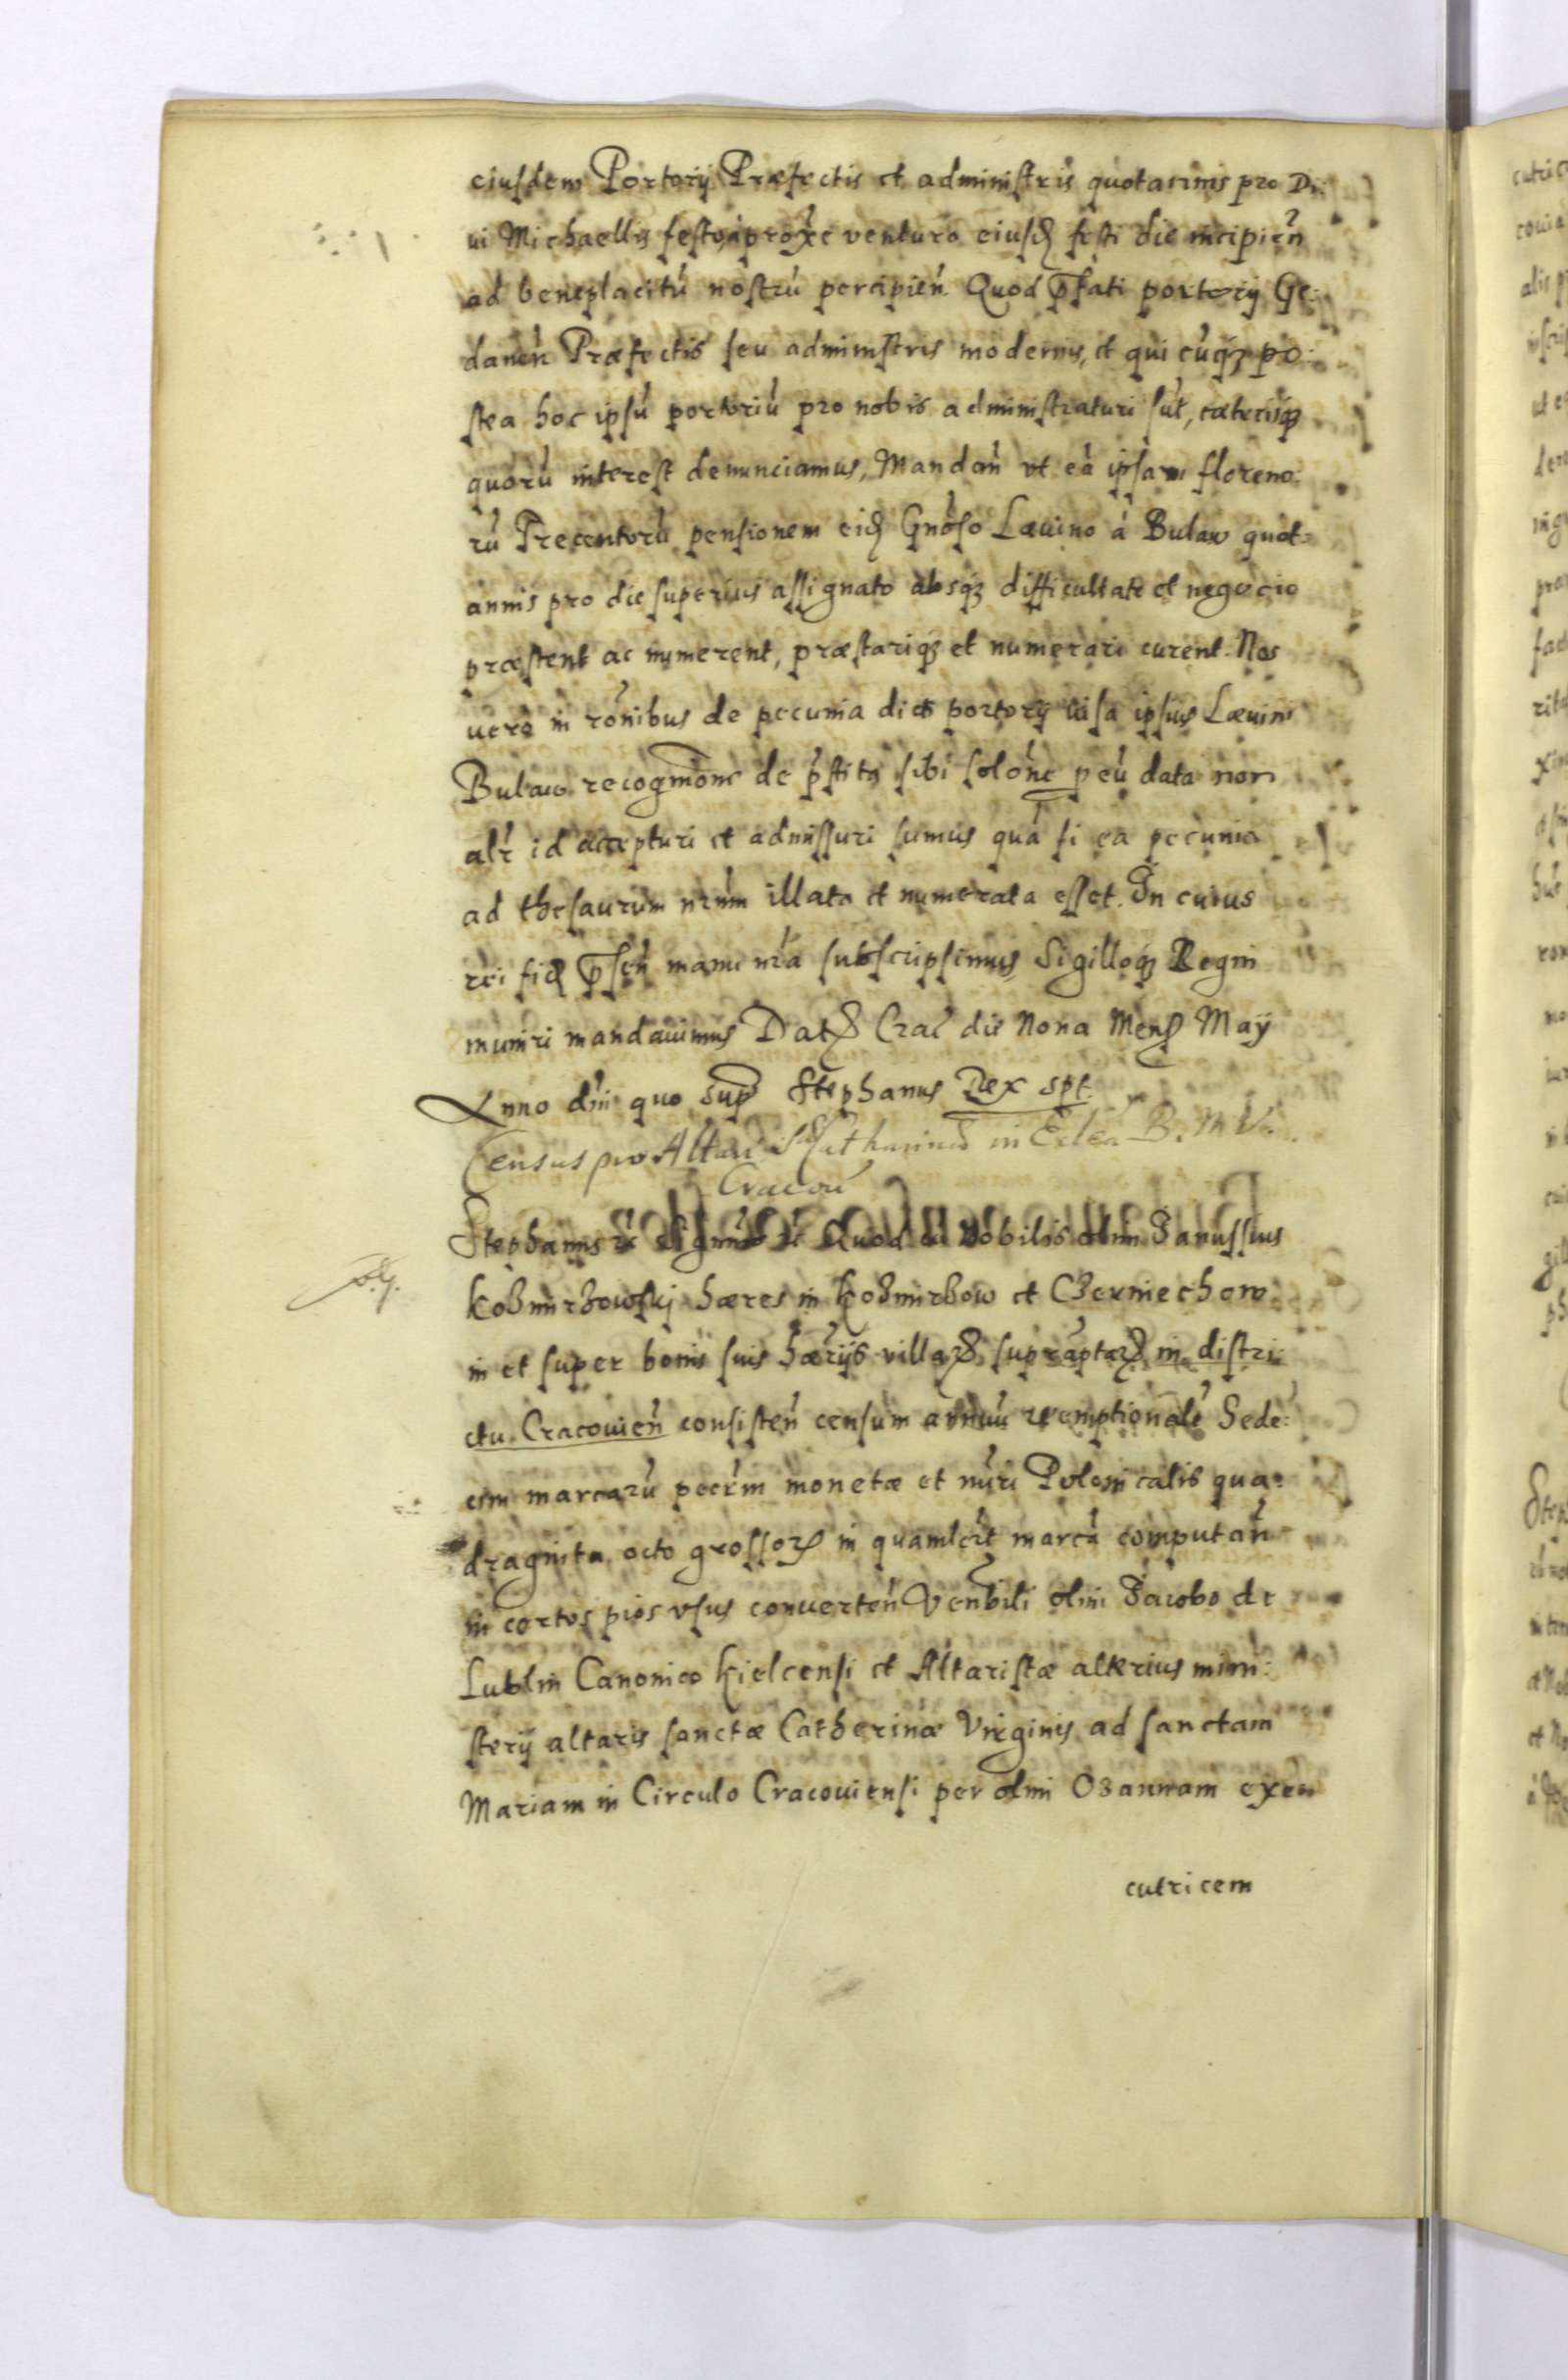 eiusdem Portorij Præfectis et administris quotannis pro Di:
ui Michaellis festo, proxe venturo eiusd festi die incipień
ad beneplacitú nostrú percipień. Quod pfati portorij Ge:
danéń Præfectis seu administris modernis, et qui cúqz po:
stea hoc ipsú portoriú pro nobis administraturi sút, cæterisqz
quorú interest denunciamus, Mandań vt eá ipsam floreno:
rú Trecentorú pensionem eid Gnoso Læuino á Bulaw quot=
annis pro die superius assignato absqz difficultate et negocio
præstent ac numerent, præstariqz et numerari curent. Nos
uero in rónibus de pecunia dict portorij uisa ipsius Læuini
Bulaw recognitione de pstita sibi solóne peú data non
alr id accepturi et admissuri sumus quá si ea pecunia
ad thesaurum nrúm illata et numerata esset. In cuius
rei fid pseń manu nrá subscripsimus, Sigilloqz Regni
muniri mandauimus Dat Crac die Nona Mens Maij
Anno dni quo sup Stephanus Rex spt.
Census pro Altari S. Catharinæ in Eclea B. M. V.
Cracov
Stephanus rc Significamus rc Quod cú Nobilis olim Janussius
Kozmirzowskj hæres in Kozmirzow et Czerniechow
in et super bonis suis hærijs villaꝝ supraptaꝝ in distri:
ctu Cracouień consisteń censum annuú reemptionalé Sede:
cim marcarú pecrim monetæ et nuri Polonicalis qua:
draginta octo grossoꝝ in quamlibt marcá computań
in certos pios vsus conuerteń Venbili olim Jacobo de
Lublin Canonico Kielcensi et Altaristæ alterius mini:
sterij altaris sanctæ Catherinæ Virginis ad sanctam
Mariam in Circulo Cracouiensi per olim Ozannam exeu
cutricem